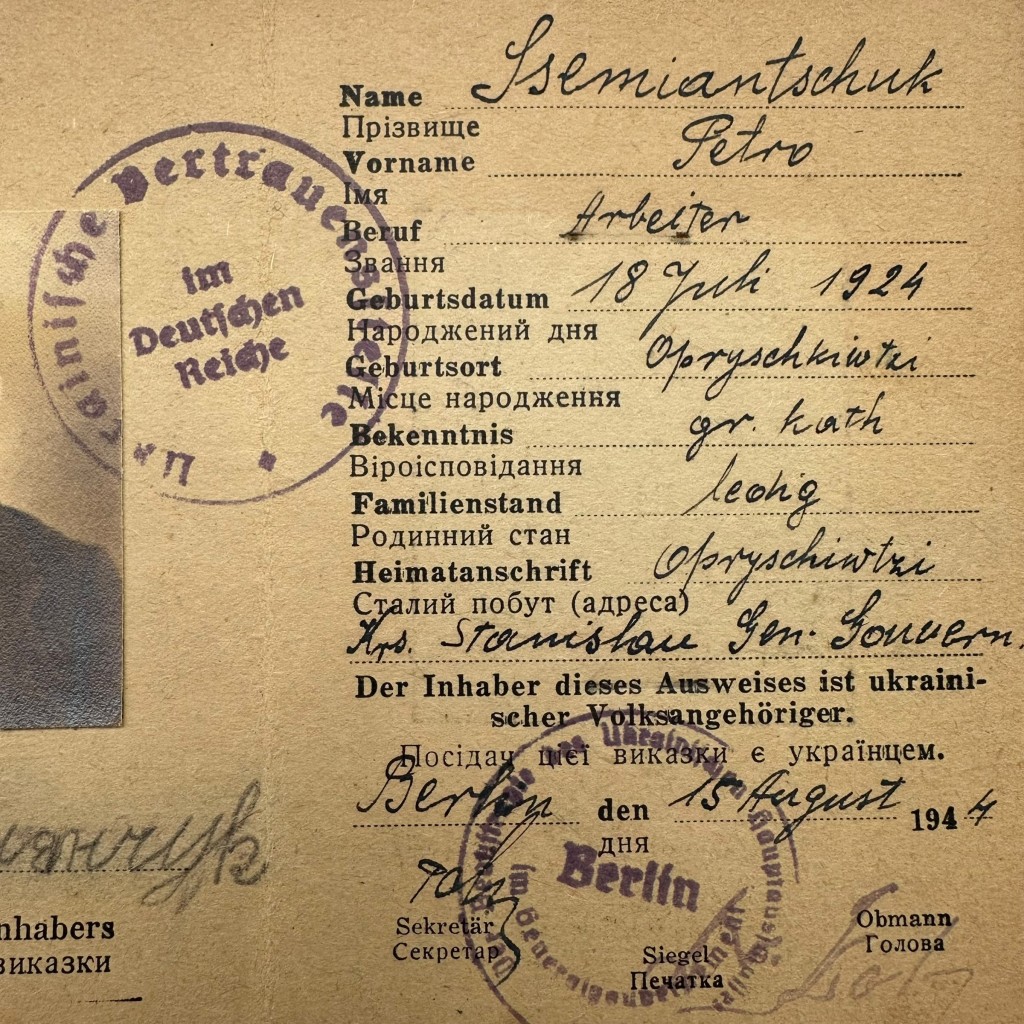 Name Ssemiantschuk
Прізвище
Vorname Petro
Імя
Beruf Arbeiter
Звання
Geburtsdatum 18 Juli 1924
Народжений дня
Geburtsort Opryschkiwtzi
Місце народження
Bekenntnis gr. kath
Віроісповідання
Familienstand ledig
Родинний стан
Heimatanschrift Opryschiwtzi
Сталий побут (адреса)
Krs. Stanislau Gen. Gouvern.
Der Inhaber dieses Ausweises ist ukraini-
scher Volksangehöriger.
Посідач цієї виказки є українцем.
Berlin den 15 August 1944
дня
Sekretär
Секретар
Siegel
Печатка
Obmann
Голова
nhabers
виказки
ainische Vertrauensstelle
im
Deutschen
Reiche
Berlin